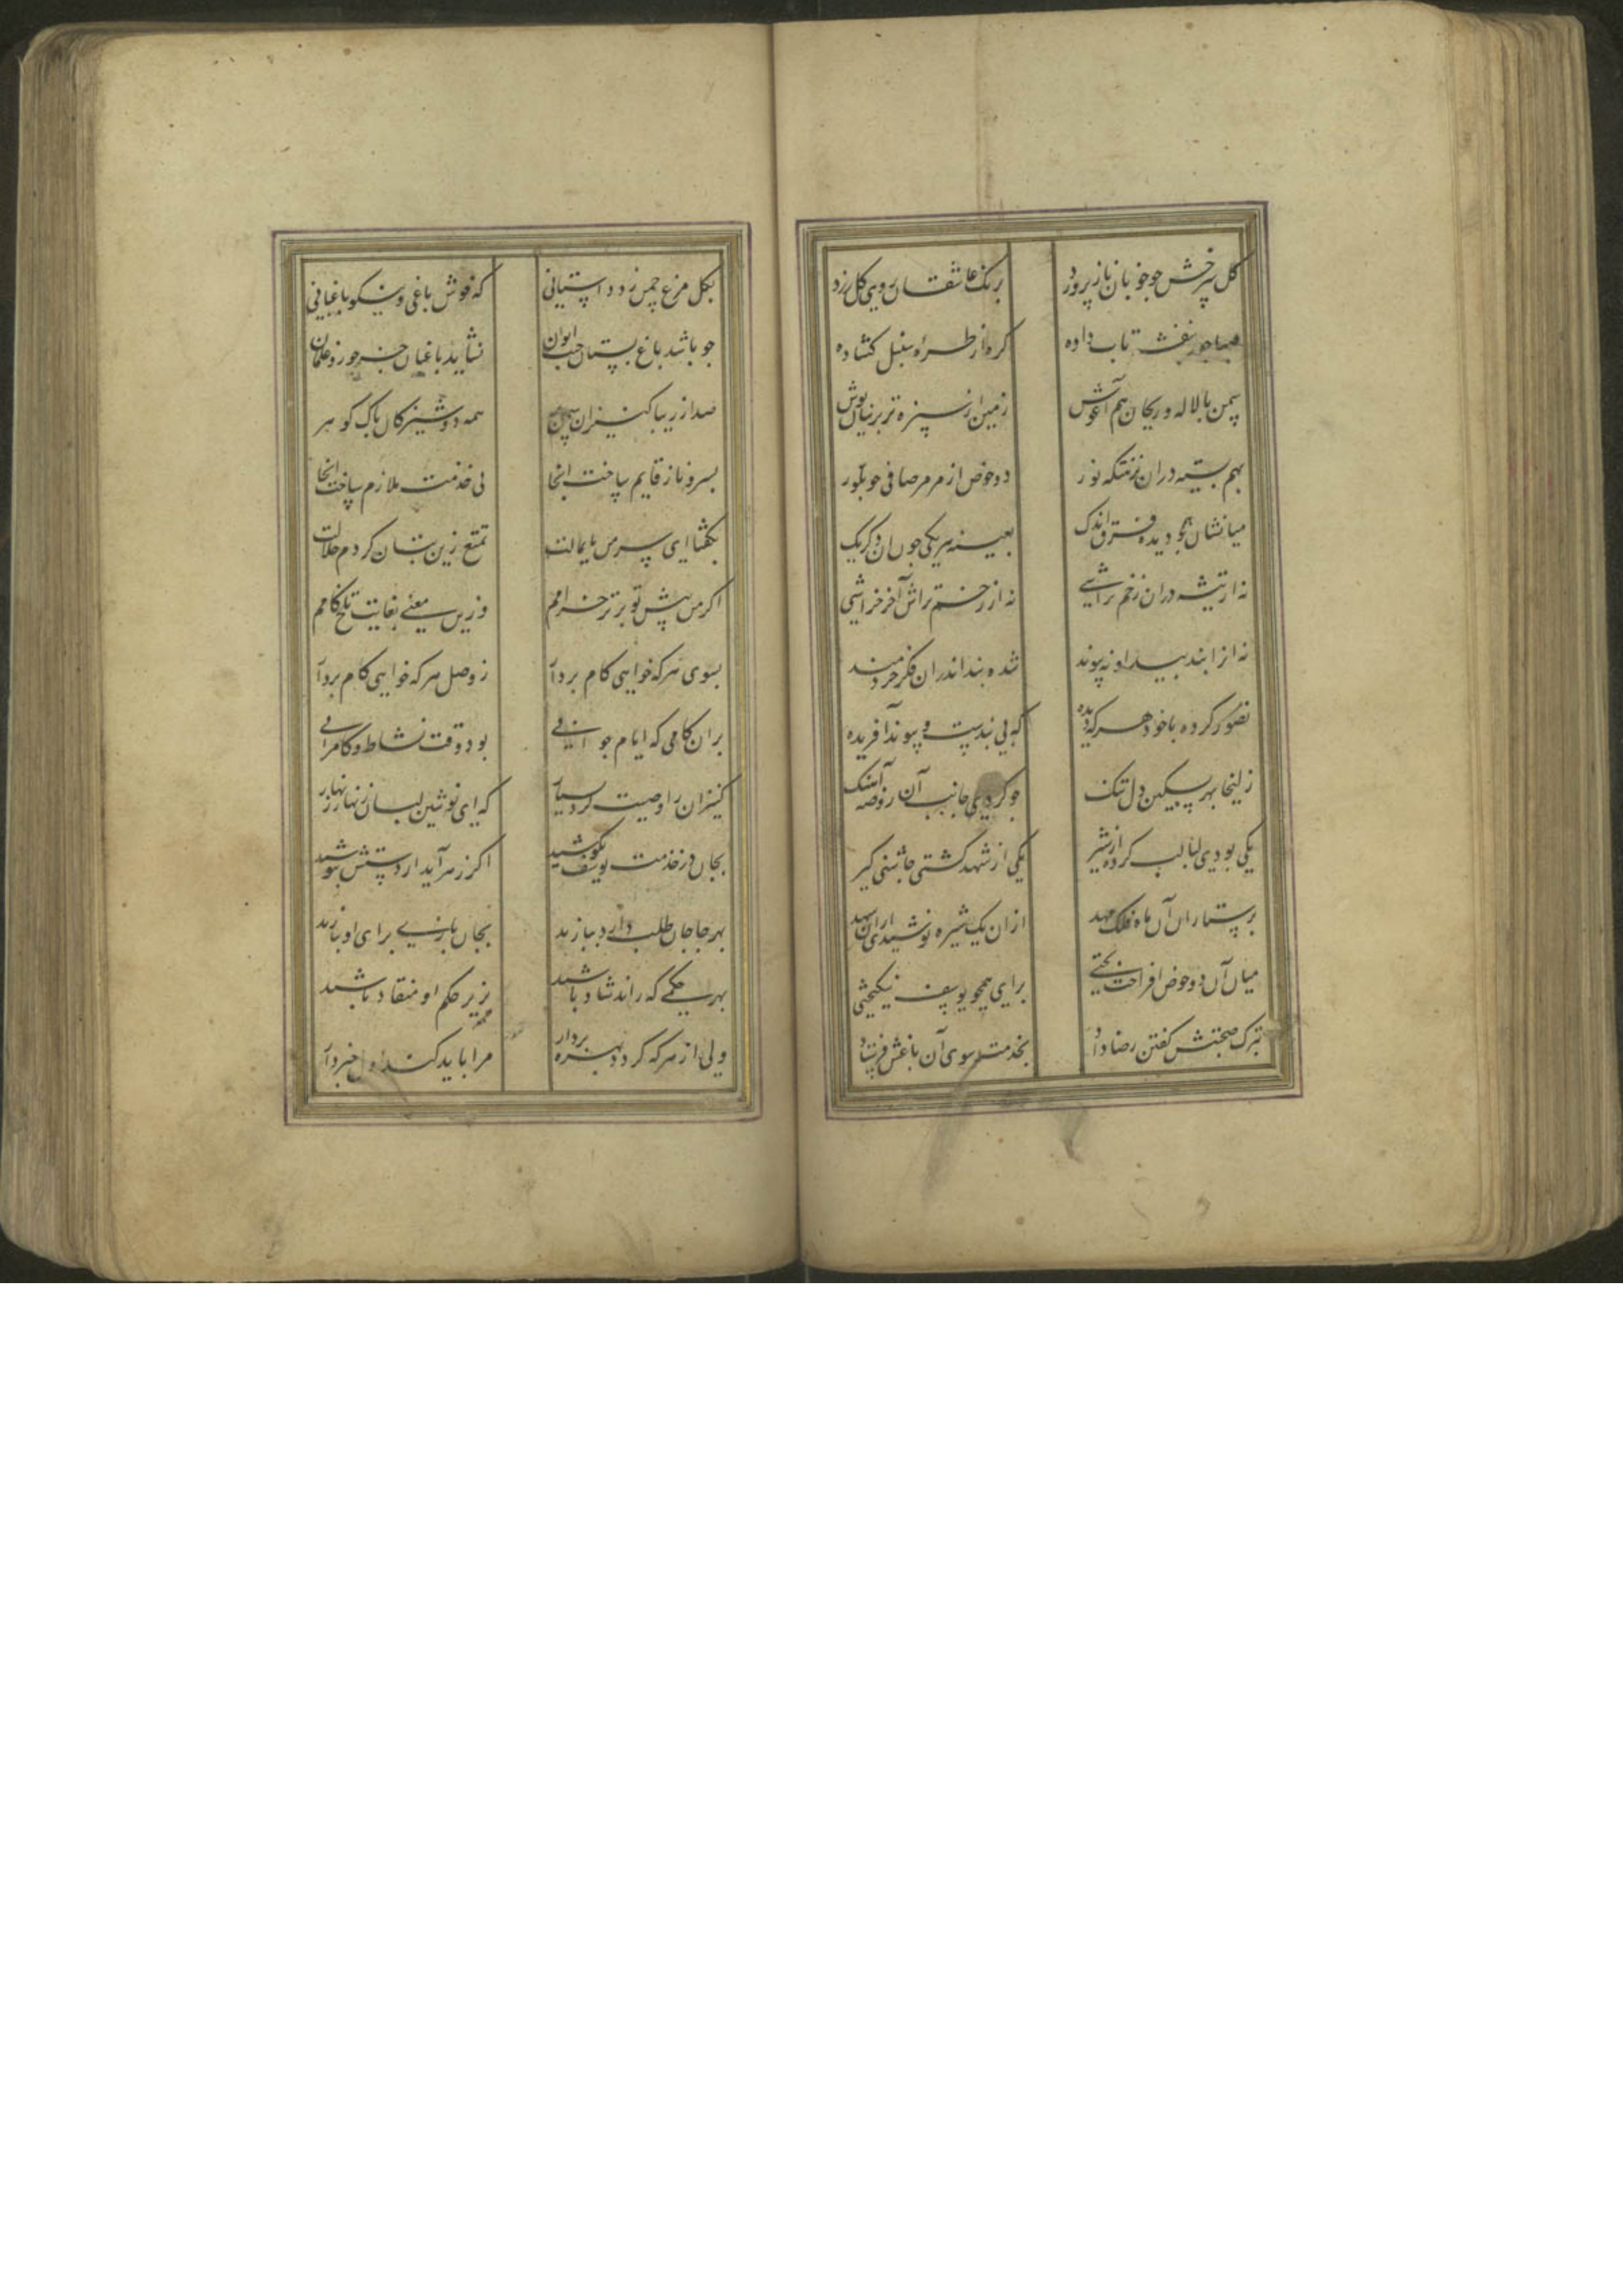 کل سرخش جو خوبان ناز پرورد برنک عاشقان روی کل زرد
صبا جعد بنفشه تاب داده کره از طره سنبل کشاده
سمن با لاله و ریحان هم آغوش زمین از سبزه تر پرنیان پوش
بهم بسته دران نزهتکه نور دو حوض از مرمر صافی جو بلور
میانشان جو دیده فرق اندک بعینه هر یکی جون آن دکر یک
نه از تیشه دران زخم تراشی نه از زخم تراش آخر خراشی
نه از ابند پیدا و نه پیوند شده بند اندران فکر خردمند
تصور کرده با خود هر که دیده که بی بندست و پیوند آفریده
زلیخا بهر تسکین دل تنک جو کردی جانب آن روضه آهنک
یکی بودی لبالب کرده از شیر یکی از شهد کشتی جاشنی کیر
پرستاران آن ماه فلک مهد ازان یک شیره نوشیدی ازان شهد
میان آن دو حوض افراخت تختی برای همجو یوسف نیکبختی
بترک صحبتش کفتن رضا داد بخدمت سوی آن باغش فرستاد
بکل مرغ جمن زد داستانی که خوش باغی و نیکو باغبانی
جو باشد باغ بستان جنت ایوان نشاید باغبان جز حور و غلمان
صد از زیبا کنیزان سمن بر همه دوشیزکان پاک کوهر
بسرو ناز قایم ساخت آنجا پی خدمت ملازم ساخت آنجا
بکفتا ای سر من پایمالت تمتع زین بتان کردم حلالت
اکر من پیش تو برتر حرامم وزین معنی بغایت تلخ کامم
بسوی هر که خواهی کام بردار ز وصل هر که خواهی کام بردار
بران کامی که ایام جوانی بود وقت نشاط و کامرانی
کنیزان را وصیت کرد بسیار که ای نوشین لبان زنهار زنهار
بجان در خدمت یوسف بکوشید اکر زهر آید از دستش بنوشید
بهر جا جان طلب دارد بیازید بجان بازی برای او بنازید
بهر حکمی که راند شاد باشید بزیر حکم او منقاد باشید
ولی از هر که کردد بهره بردار مرا باید کند اول خبردار